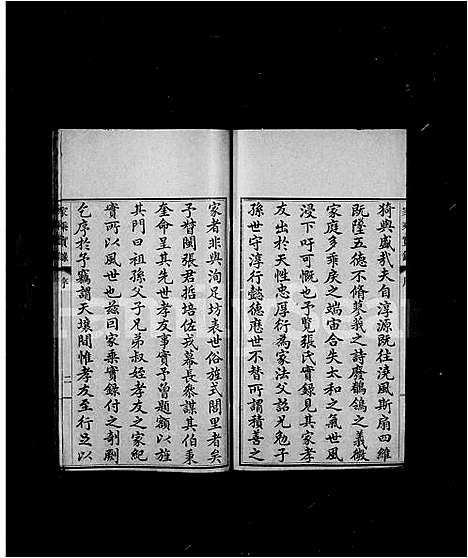 猗與盛哉夫自淳源既往澆風斯扇四維
既墮五德不脩蓼莪之詩廢鶺鴒之義微
家庭多乖戾之端宙合失太和之氣世風
寖下吁可慨也予覽張氏實錄見其家孝
友出於天性忠厚衍為家法父詔兄勉子
孫世守淳行懿德應世不替所謂積善之
家者非與洵足坊表世俗旌式閭里者矣
予督閩張君哲培佐戎幕長叅謀其伯秉
奎命呈其先世孝友事實予曾題額以旌
其門曰祖孫父子兄弟叔姪孝友之家紀
實所以風世也茲回家乘實錄付之剞劂
乞序於予竊謂天壤間惟孝友至行足以
家乘實錄 序 二